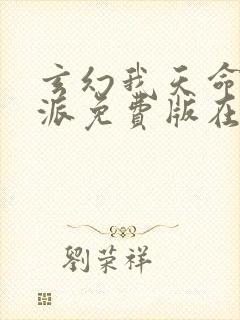 玄幻我天命
派免費版在
劉荣祥